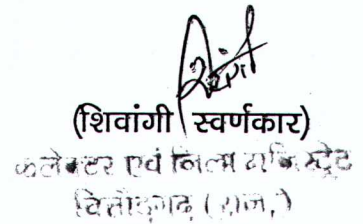 (शिवांगी स्वर्णकार)
कलेक्टर एवं जिला मजिस्ट्रेट
चित्तौड़गढ़ (राज.)